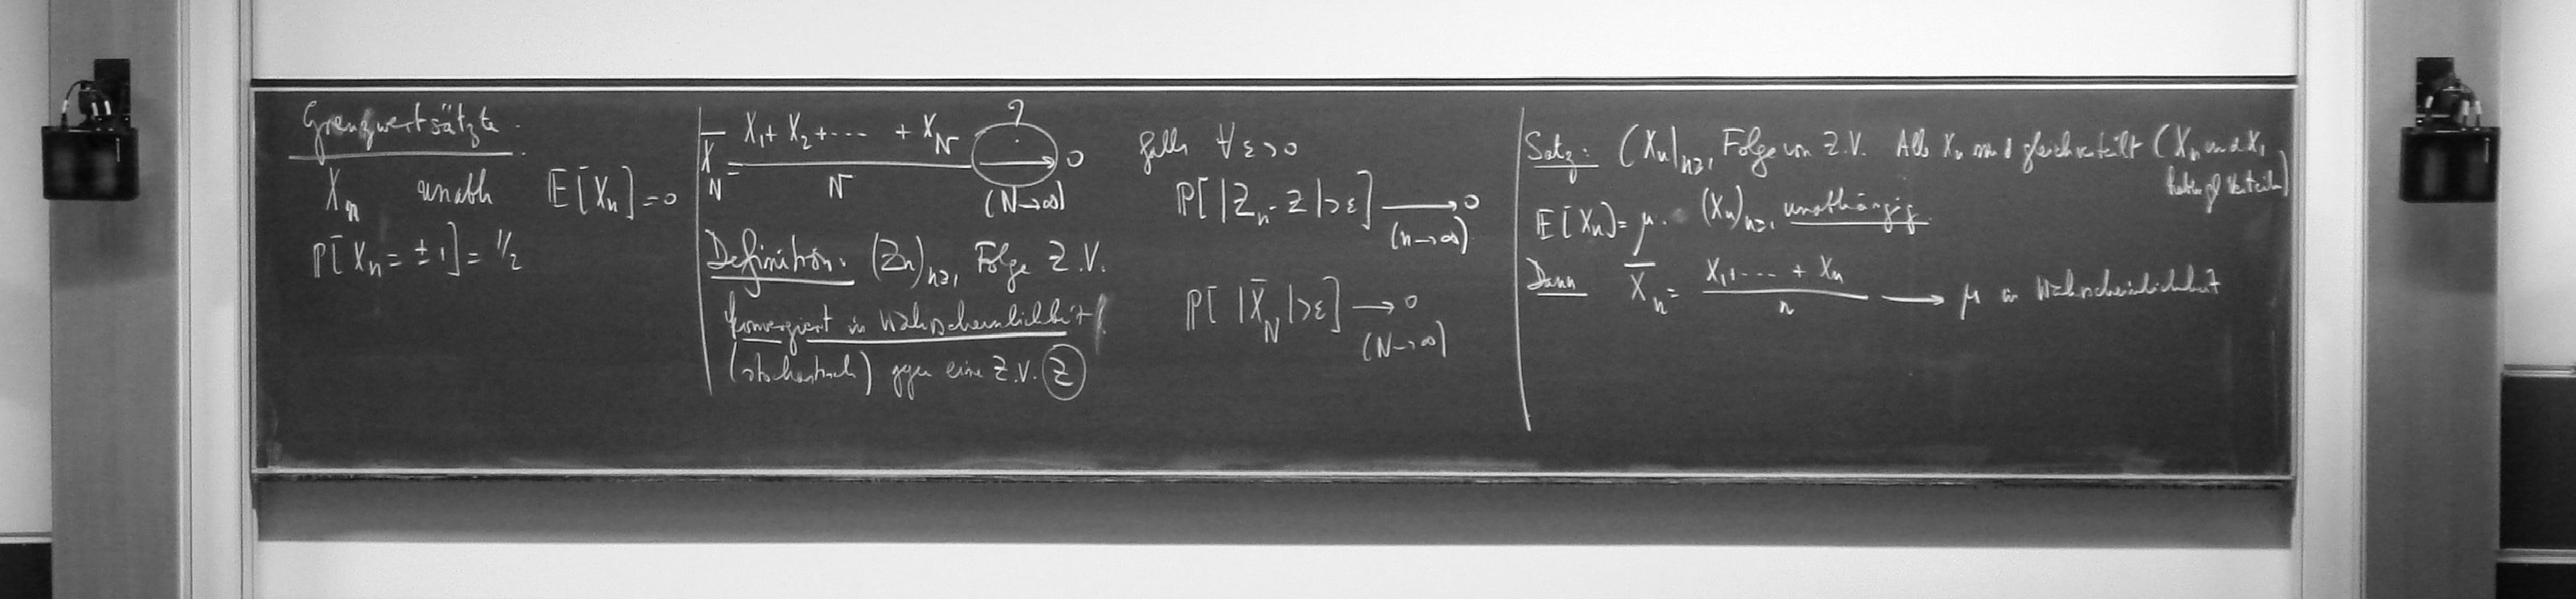 Grenzwertsätzte.
Xₙ unabh E[Xₙ]=0
P[Xₙ = ±1] = 1/2
X̄_N = (X₁ + X₂ + ⋯ + X_N) / N → 0 ?
(N→∞)
Definition: (Zₙ)ₙ≥₁ Folge Z.V.
konvergiert in Wahrscheinlichkeit
(stochastisch) gegen eine Z.V. Z
falls ∀ε>0
P[|Zₙ - Z|>ε] → 0
(n→∞)
P[|X̄_N|>ε] → 0
(N→∞)
Satz: (Xₙ)ₙ≥₁ Folge von Z.V. Alle Xₙ sind gleichverteilt (Xₙ und X₁
haben gl Verteilu)
E[Xₙ]=μ. (Xₙ)ₙ≥₁ unabhängig.
Dann X̄ₙ = (X₁+⋯+Xₙ) / n → μ in Wahrscheinlichkeit